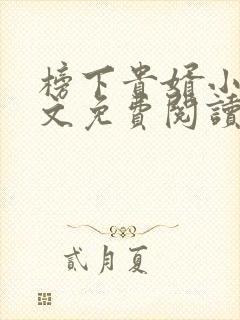 榜下貴婿小
文免費閱讀
貳月夏